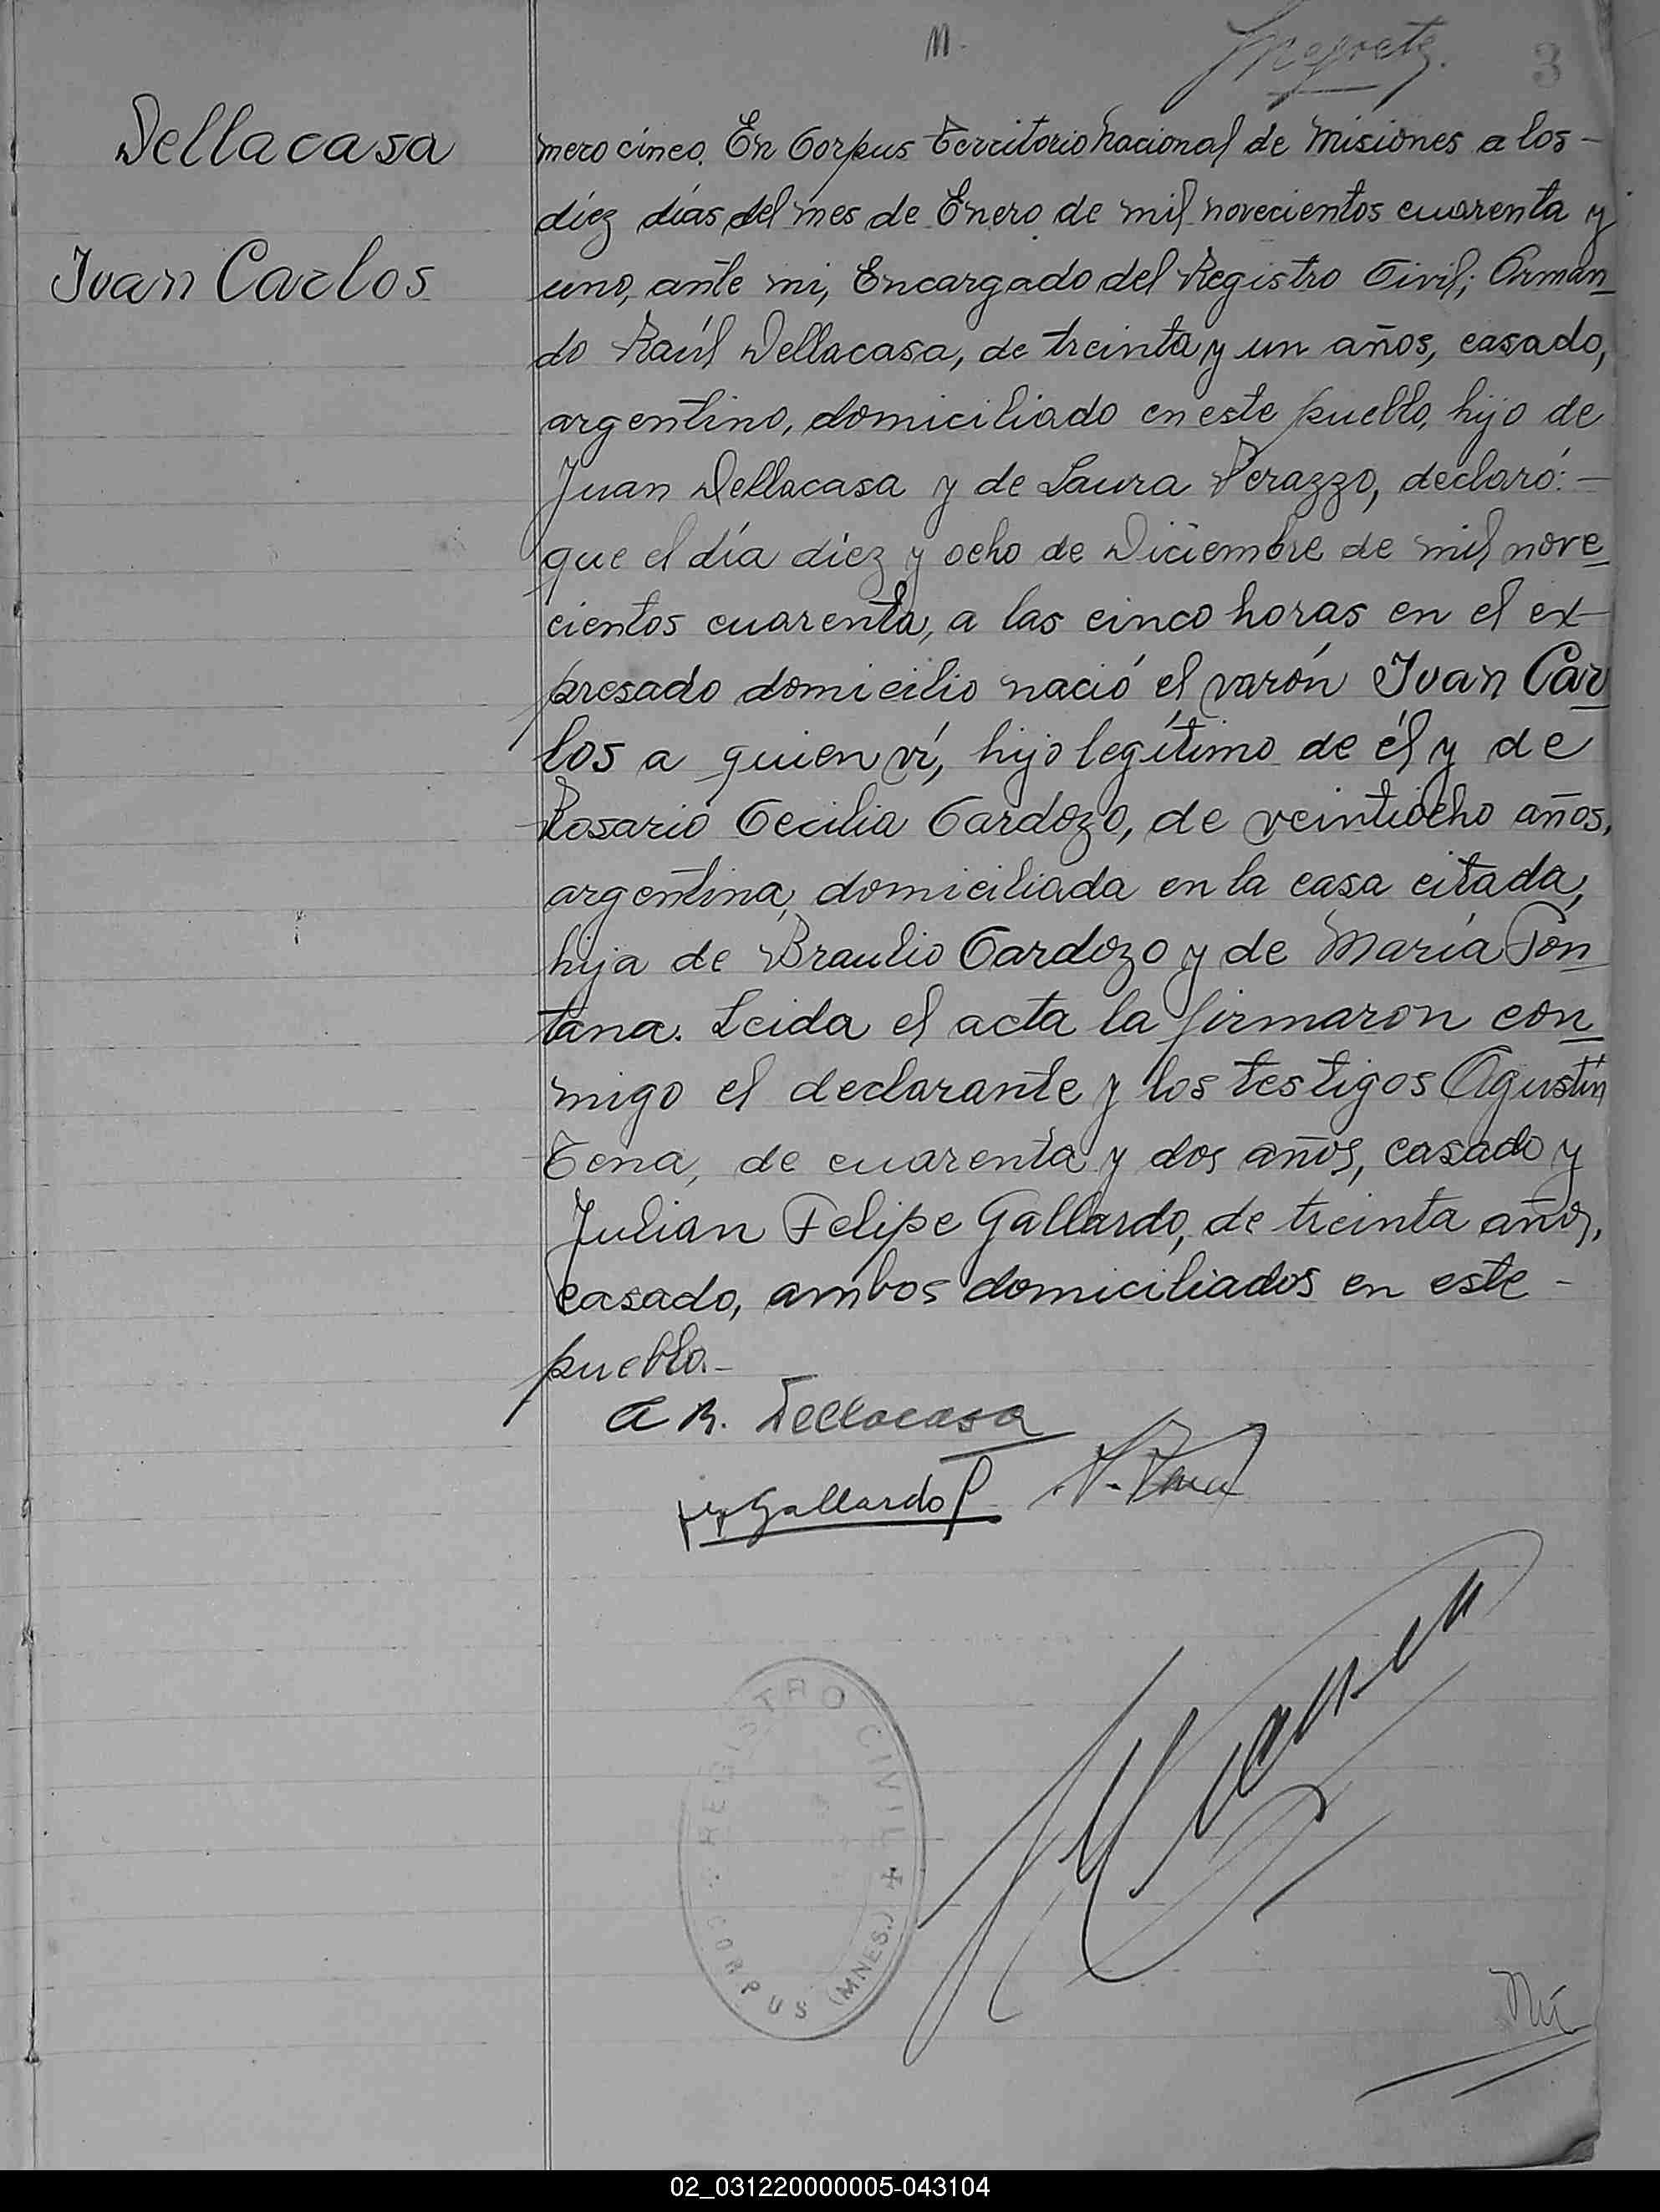 M.
3
Dellacasa
Juan Carlos
mero cinco. En Corpus Territorio Nacional de Misiones a los -
diez días del mes de Enero de mil novecientos cuarenta y
uno, ante mi, Encargado del Registro Civil; Orman
do Raúl Dellacasa, de treinta y un años, casado,
argentino, domiciliado en este pueblo, hijo de
Juan Dellacasa y de Laura Perazzo, declaró: -
que el día diez y ocho de Diciembre de mil nove
cientos cuarenta, a las cinco horas en el ex-
presado domicilio nació el varón Juan Car
los a quien ví, hijo legítimo de él y de
Rosario Cecilia Cardozo, de veintiocho años,
argentina, domiciliada en la casa citada,
hija de Braulio Cardozo y de María Fon
tana. Leida el acta la firmaron con
migo el declarante y los testigos Agustín
Tena, de cuarenta y dos años, casado y
Julian Felipe Gallardo, de treinta años,
casado, ambos domiciliados en este -
pueblo. -
A R. Dellacasa
Gallardo
REGISTRO CIVIL
CORPUS (MNES.)
Nú
02_031220000005-043104